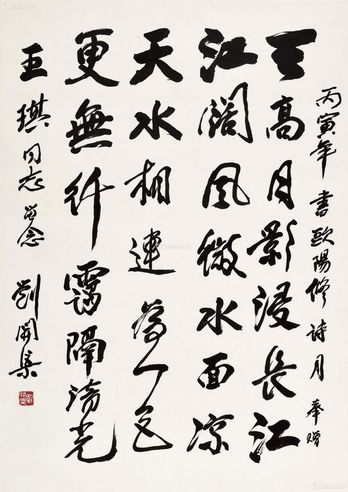 丙寅年書歐陽修詩月奉贈
天高月影浸長江
江闊風微水面涼
天水相連為一色
更無纤靄隔清光
王琪同志留念
劉開渠